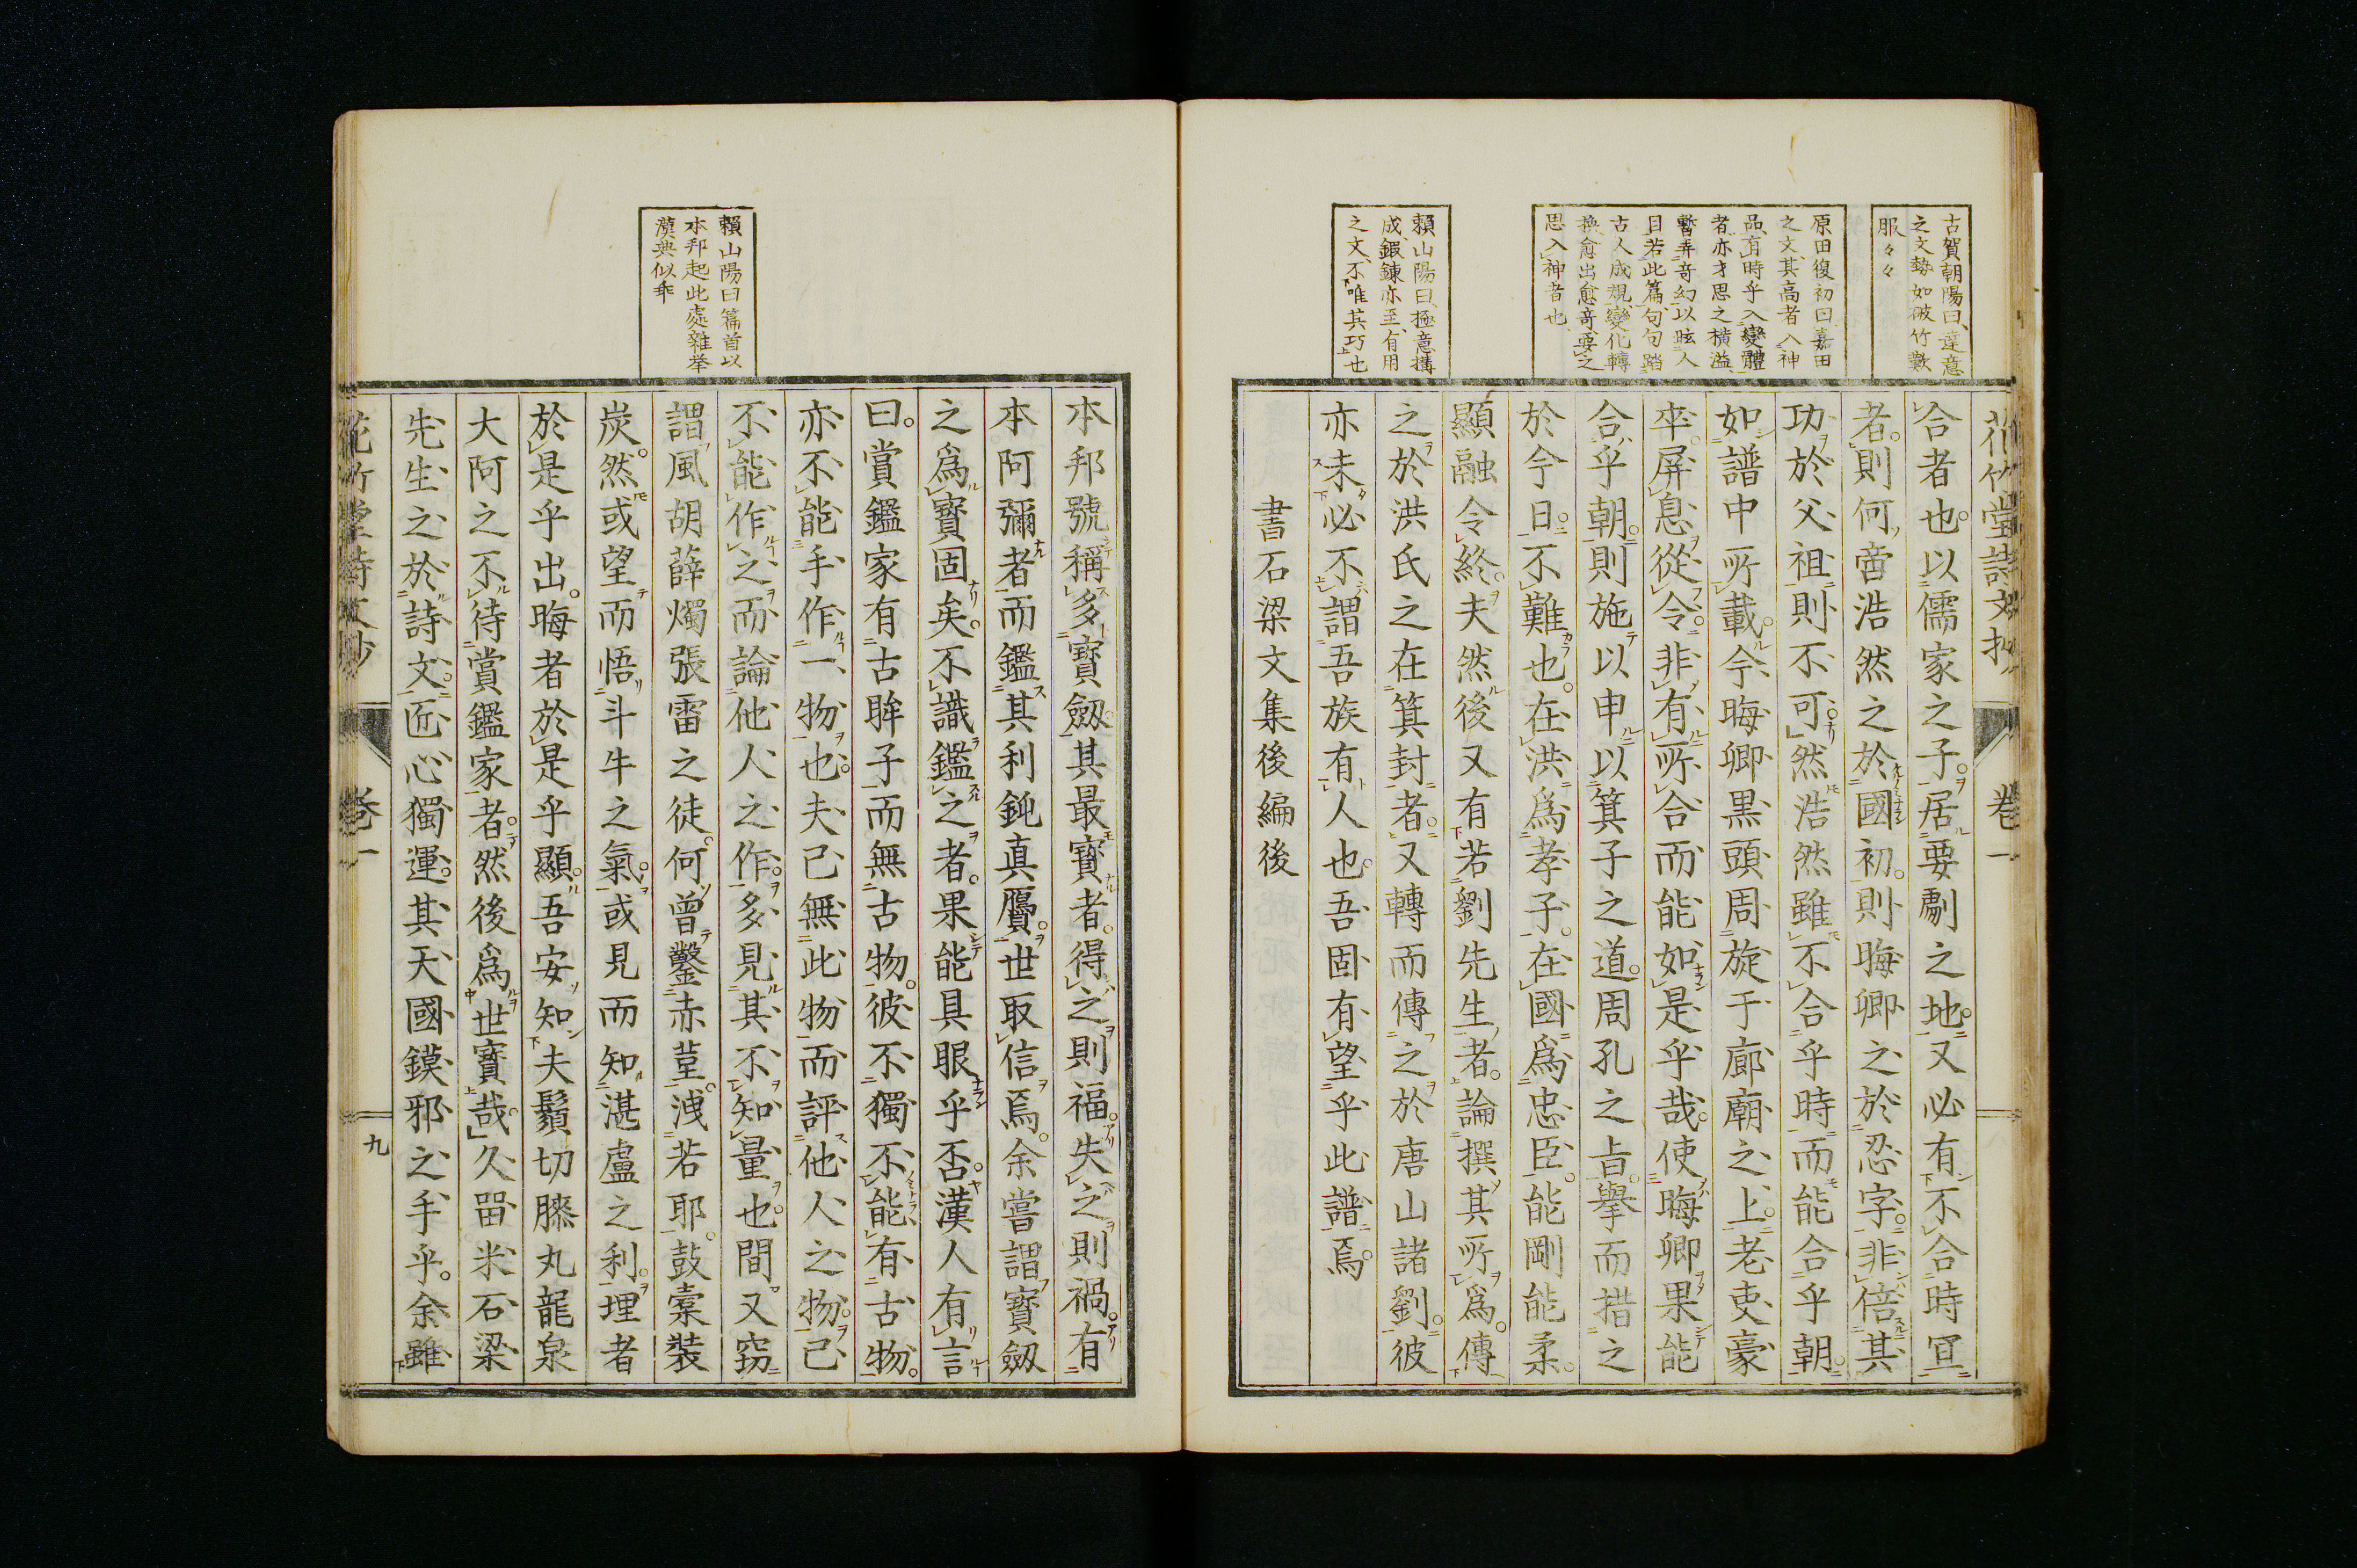 古賀朝陽曰、達意
之文勢如破竹歎
服々々
原田復初曰、嘉田
之文、其高者入神
品、有時乎入變體
者、亦才思之橫溢
暫弄奇幻以眩人
目、若此篇、句句踏
古人成規、變化轉
換愈出愈奇、要之
思入神者也
賴山陽曰、極意搆
成、鍜鍊亦至、有用
之文、不唯其巧也
卷一
合者也。以儒家之子。居要劇之地。又必有不合時宜
者。則何啻浩然之於國初。則晦卿之於忍字。非倍其
功於父祖則不可。然浩然雖不合乎時。而能合乎朝。
如譜中所載。今晦卿黒頭周旋于廊廟之上。老吏豪
卒。屏息從令。非有所合而能如是乎哉。使晦卿果能
合乎朝。則施以申以箕子之道。周孔之旨。擧而措之
於今日。不難也。在洪爲孝子。在國爲忠臣。能剛能柔。
顯融令終。夫然後又有若劉先生者。論撰其所爲。傳
之於洪氏之在箕封者。又轉而傳之於唐山諸劉。彼
亦未必不謂吾族有人也。吾固有望乎此譜焉。
書石梁文集後編後
賴山陽曰篇首以
本邦起此處雜挙
漢典似乖
本邦號稱多寶劔。其最寶者。得之則福。失之則禍。有
本阿彌者。而鑑其利鈍真贋。世取信焉。余嘗謂寶劔
之爲寶固矣。不識鑑之者。果能具眼乎否。漢人有言
曰。賞鑑家有古眸子。而無古物。彼不獨不能有古物。
亦不能手作一物也。夫已無此物。而評他人之物。已
不能作之。而論他人之作。多見其不知量也。間又窃
謂風胡薛燭張雷之徒。何曾鑿赤堇。洩若耶。鼓橐裝
炭。然或望而悟斗牛之氣。或見而知湛盧之利。埋者
於是乎出。晦者於是乎顯。吾安知夫鬚切膝丸龍泉
大阿之不待賞鑑家者。然後爲世寶哉。久畱米石梁
先生之於詩文。匠心獨運。其天國鏌邪之手乎。余雖
卷一
九